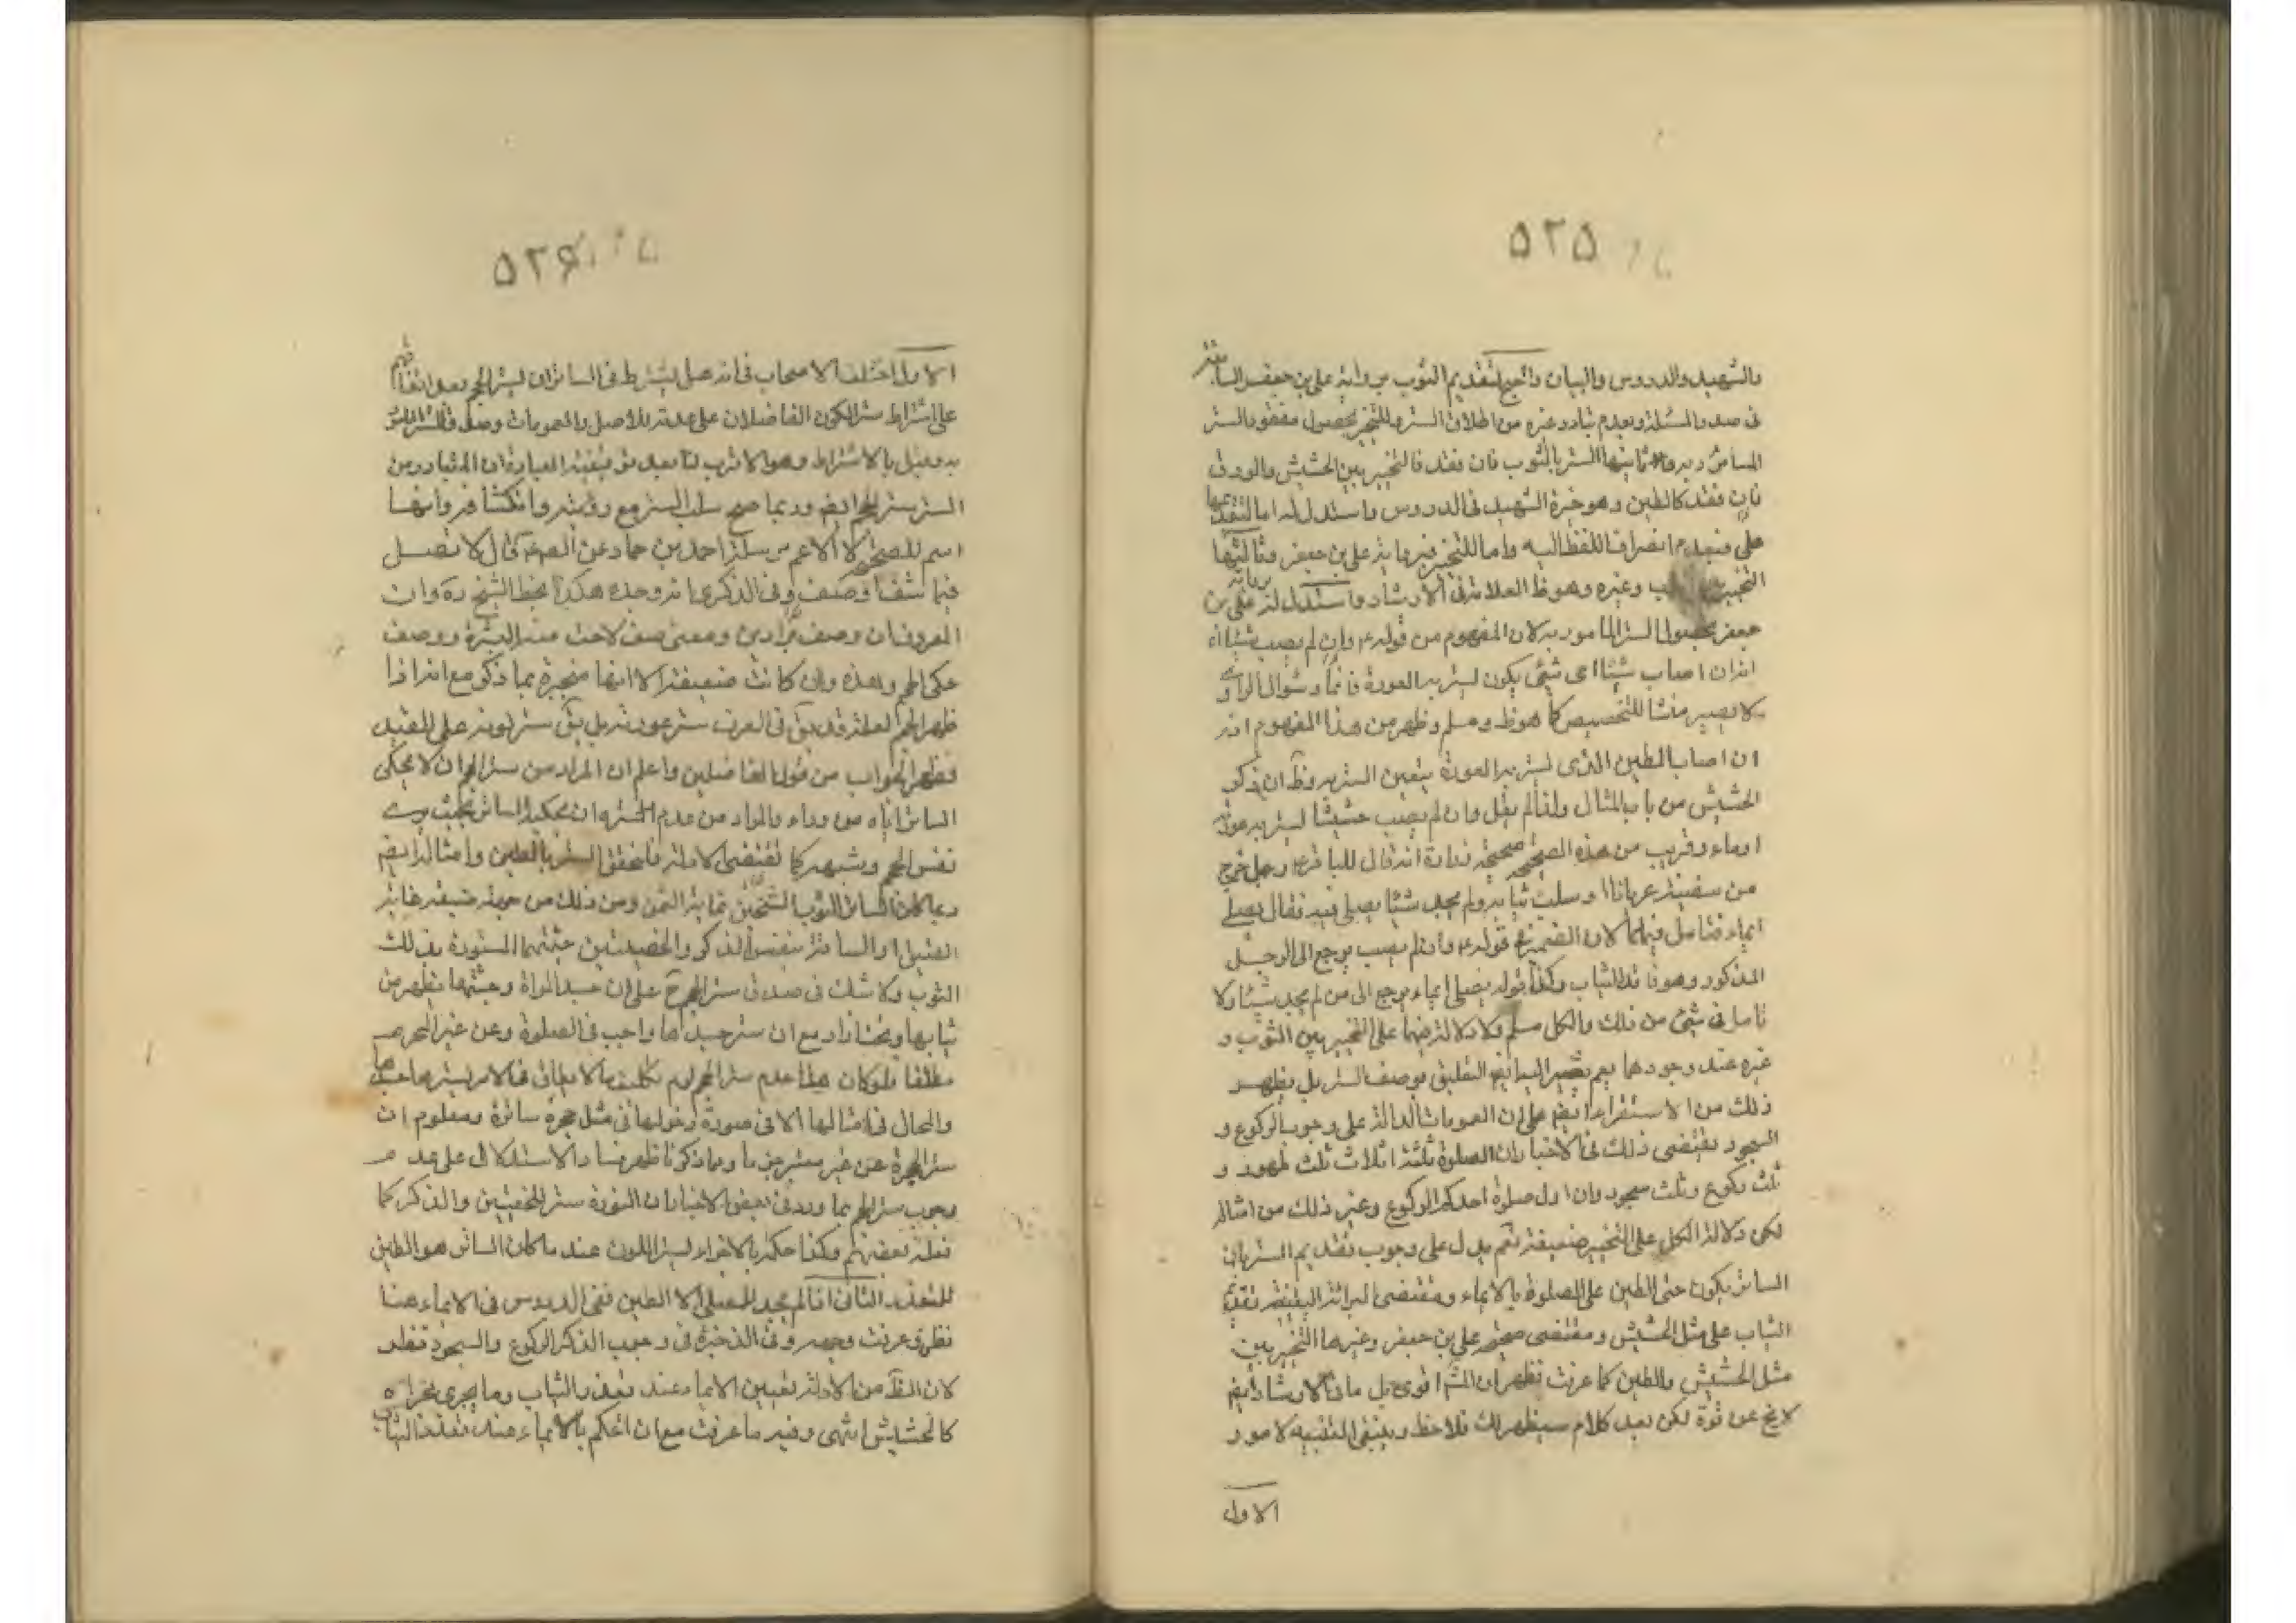 ٥٢٥
والشهيد والدروس والبيان واحتج لتقديم الثوب برواية علي بن جعفر السابقة
في صدر المسئلة وبعدم تبادر غيره من اطلاق الستر وللتخيير بحصول مقصود الستر
ثانيها الستر بالثوب فان فقد فالتخيير بين الحشيش والورق
فان فقد كالطين وهو خيرة الشهيد في الدروس واستدل له اما لتقديمها
على فبعدم انصراف اللفظ اليه واما للتخيير فبرواية علي بن جعفر وثالثها
التخيير بين وغيره وهو ظ العلامة في الارشاد واستدل له برواية علي بن
جعفر بحصول الستر المامور به لان المفهوم من قوله ع وان لم يصب شيئا
انه ان اصاب شيئا اى شئ يكون ليستر به العورة وسؤال الراوى
لا يصير منشأ للتخصيص كما هو ظ ومسلم وظهر من هذا المفهوم انه
ان اصاب الطين الذى يستر به العورة يتعين الستر به وظ ان ذكر
الحشيش من باب المثال ولذا لم يقل وان لم يصب حشيشا يستر به عورته
اوماء وقريب من هذه الصحيحة صحيحة زرارة انه قال للباقر ع رجل خرج
من سفينة عريانا او سلبت ثيابه ولم يجد شيئا يصلى فيه فقال يصلى
ايماء فتامل فيهما لان الضمير في قوله ع وان لم يصب يرجع الى الرجل
المذكور وهو فاقد الثياب وكذا قوله يصلى ايماء يرجع الى من لم يجد شيئا ولا
تامل في شئ من ذلك والكل مسلم ولا دلالة فيها على التخيير بين الثوب و
غيره عند وجودهما نعم التعليق بوصف الستر بل يظهر
ذلك من الاستقراء ايضا على ان العمومات الدالة على وجوب الركوع و
السجود يقتضى ذلك في الاخبار ان الصلوة ثلثة اثلاث ثلث طهور و
ثلث ركوع وثلث سجود وان اول صلوة احدكم الركوع وغير ذلك من امثاله
لكن دلالة الكل على التخيير ضعيفة نعم يدل على وجوب تقديم الستر بان
الساتر يكون حتى الطين على الصلوة بالايماء ومقتضى البرائة اليقينية تقديم
الثياب على مثل الحشيش ومقتضى صحيحة علي بن جعفر وغيرها التخيير بين
مثل الحشيش والطين كما عرفت فظهر ان اقوى بل ما في الارشاد ايضا
لا يخ عن قوة لكن بعد كلام سيظهر لك فلاحظ وينبغى التنبيه لامور
الاول
٥٢٦
الاول اختلف الاصحاب في انه هل يشترط في الساتر ان يستر الحجم بعد اتفاقهم
على اشتراط ستر اللون الفاضلان على عدمه للاصل والعمومات وصدق الستر
به وقيل بالاشتراط وهو الاقرب لنا بعد توقيفية العبادة ان المتبادر من
الستر ستر الحجم ايضا وربما صح سلب الستر مع رؤيته وانكشافه وانها
اسم للصحيحة لا الاعم مرسلة احمد بن حماد عن الصادق ع قال لا تصل
فيما شف او صف وفي الذكرى انه وجده هكذا بخط الشيخ ره وان
المعروف ان وصف بواوين ومعنى شف لاحت منه البشرة ووصف
حكى الحجم وهذه وان كانت ضعيفة الا انها منجبرة بما ذكر مع انه اذا
ظهر الحجم لعله قد يق في العرف ستر عورته بل يق ستر لونه على التقييد
فظهر الجواب من قول الفاضلين واعلم ان المراد من ستر الحجم ان لا يحكى
الساتر اياه من وراء والمراد من عدم الستر ان يحكيه الساتر بحيث يرى
نفس الحجم وشبهه كما تقتضى الادلة فالتحقق الستر بالطين وامثاله ايضا
وبما كان الساتر الثوب الثخين نهاية الثخن ومن ذلك من جهة ضيقه غاية
الضيق او الساتر بنفس الذكر والخصيتين جثتهما المستورة بذلك
الثوب ولا شك في صدق ستر الحجم ح على ان جسد المراة وجثتها يظهر من
ثيابها وتحت ازار مع ان ستر جسدها واجب في الصلوة وعن غير المحرم
مطلقا فلو كان هذا عدم ستر الحجم لزم تكليف ما لا يطاق في الامر بسترها جسدها
والحال في امثالها الا في صورة دخولها في مثل حجرة ساترة ومعلوم ان
ستر الحجرة عن غير معتبر جزما وبما ذكرنا ظهر فساد الاستدلال على عدم
وجوب ستر الحجم بما ورد في بعض الاخبار ان النورة ستر للخصيتين والذكر كما
فعله بعضهم وكذا حكمه بالاجزاء لستر اللون عند ما كان الساتر هو الطين
للتعذر الثاني اذا لم يجد المصلى الا الطين ففي الدروس في الايماء هنا
نظر وعرفت وجهه وفي الذخيرة في وجوب الذكر الركوع والسجود نظر
لان الظ من الادلة تعيين الايماء عند تعذر الثياب وما يجرى مجراه
كالحشيش انتهى وفيه ما عرفت مع ان الحكم بالايماء عند تعذر الثياب